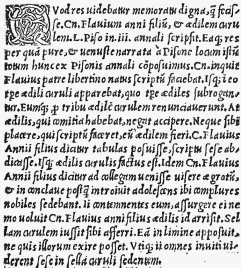 QVod res uidebatur memoratu digna, ꝗ̃ fecisse.
Cn. Flauium anni filiũ, & ædilem curulem.
L. Piso in .iii. annali scripsit. Eaq; res
per quã pure, & uenuste narrata à Pisone locum istũ
totum huncex Pisonis annali cõposuimus. Cn. inquit
Flauius patre libertino natus scriptũ faciebat. Isq; i eo
tpe ædili curuli apparebat, quo tpe ædiles subrogantur.
Eumq; p tribu ædilẽ curulem renunciauerunt. At
ædilis, qui comitia habebat, negat accipere. Neque sibi
placere, qui scriptũ faceret, eũ ædilem fieri. Cn. Flauius
Annii filius dicitur tabulas posuisse, scriptu sese abdicasse.
Isq; ædilis curulis factus est. Idem Cn. Flauius
Annii filius dicitur ad collegam uenisse uisere ægrotũ,
& in conclaue postq̃ introiuit adolescẽns ibi complures
nobiles sedebant. ii contemnentes eum, assurgere ei nemo
uoluit Cn. Flauius anni filius ædilis id arrisit. Sellam
curulem iussit sibi afferri. Eã in limine apposuit,
ne quis illorum exire posset. Vtiq; ii omnes inuiti uiderent
sese in sella curuli sedentum.